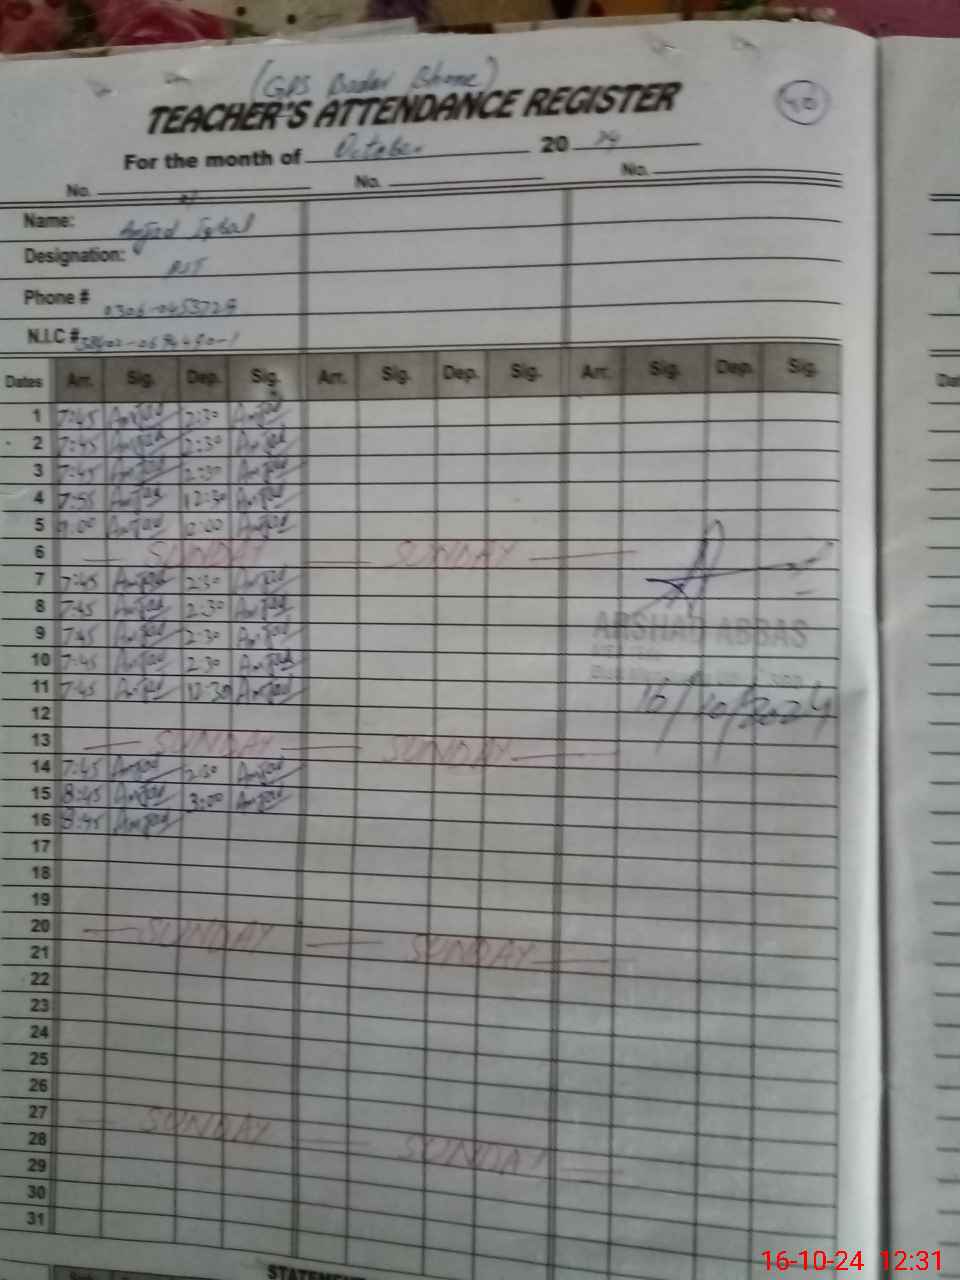 (GPS Badar Bhone)
TEACHER'S ATTENDANCE REGISTER
For the month of October 2024
No. No. No.
Name: Amjad Iqbal
Designation: PST
Phone # 0306-0453729
N.I.C #
Dates Arr. Sig. Dep. Sig. Arr. Sig. Dep. Sig. Arr. Sig. Dep. Sig.
1 7:45 Amjad 2:30 Amjad
2 7:45 Amjad 2:30 Amjad
3 7:45 Amjad 2:30 Amjad
4 7:55 Amjad 12:30 Amjad
5 9:00 Amjad Amjad
6 SUNDAY SUNDAY
7 7:45 Amjad 2:30 Amjad
8 7:45 Amjad 2:30 Amjad
9 7:45 Amjad 2:30 Amjad
ARSHAD ABBAS
10 7:45 Amjad 2:30 Amjad
11 7:45 Amjad 12:30 Amjad
16/10/2024
12
13 SUNDAY SUNDAY
14 7:45 Amjad 2:30 Amjad
15 8:45 Amjad 3:00 Amjad
16 8:45 Amjad
17
18
19
20 SUNDAY SUNDAY
21
22
23
24
25
26
27 SUNDAY SUNDAY
28
29
30
31
STATEM
16-10-24 12:31